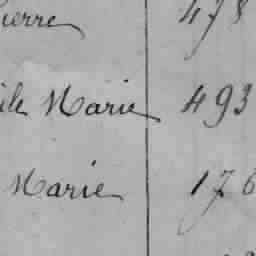 ierre 478
ile Marie 493
Marie 176